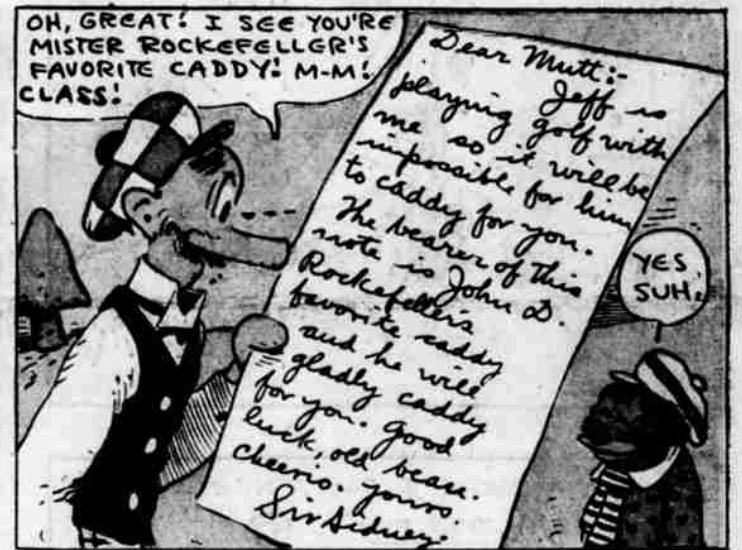 OH, GREAT! I SEE YOU'RE
MISTER ROCKEFELLER'S
FAVORITE CADDY! M-M!
CLASS!
Dear Mutt:-
Jeff is
playing golf with
me so it will be
impossible for him
to caddy for you.
The bearer of this
note is John D.
Rockefeller's
favorite caddy
and he will
gladly caddy
for you. Good
luck, old bean.
Cheerio. yours.
Sir Sidney.
YES
SUH!